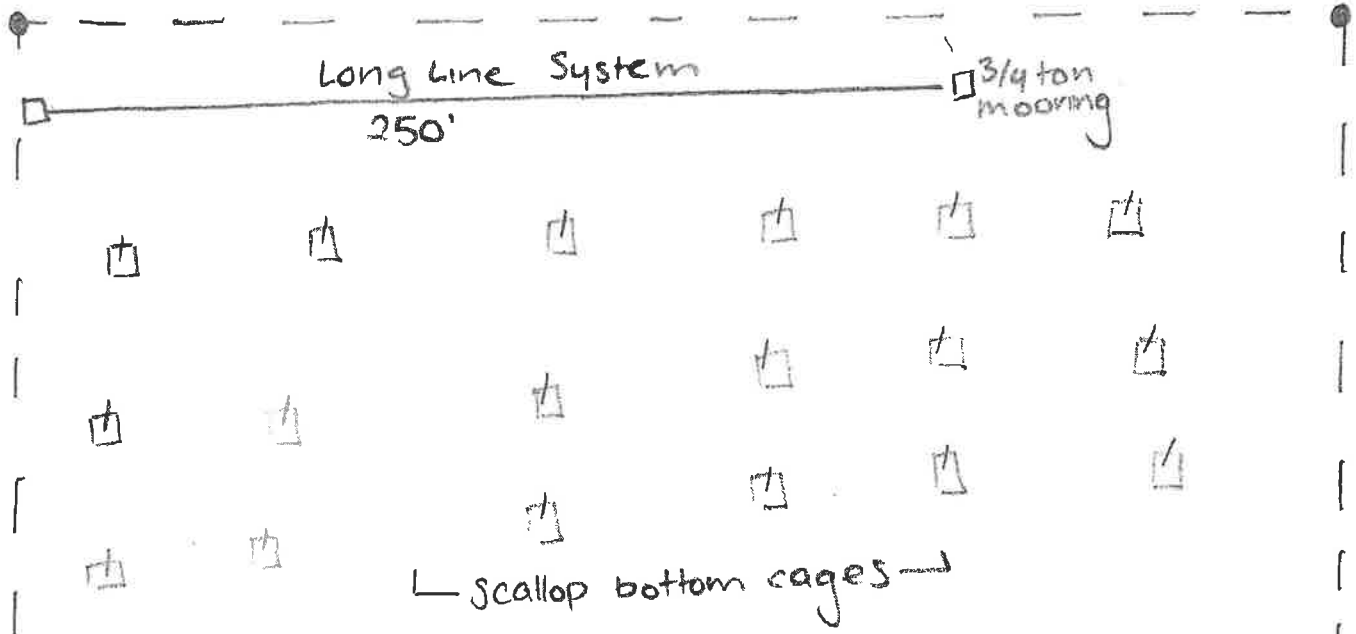 Long Line System
250'
3/4 ton
mooring
scallop bottom cages